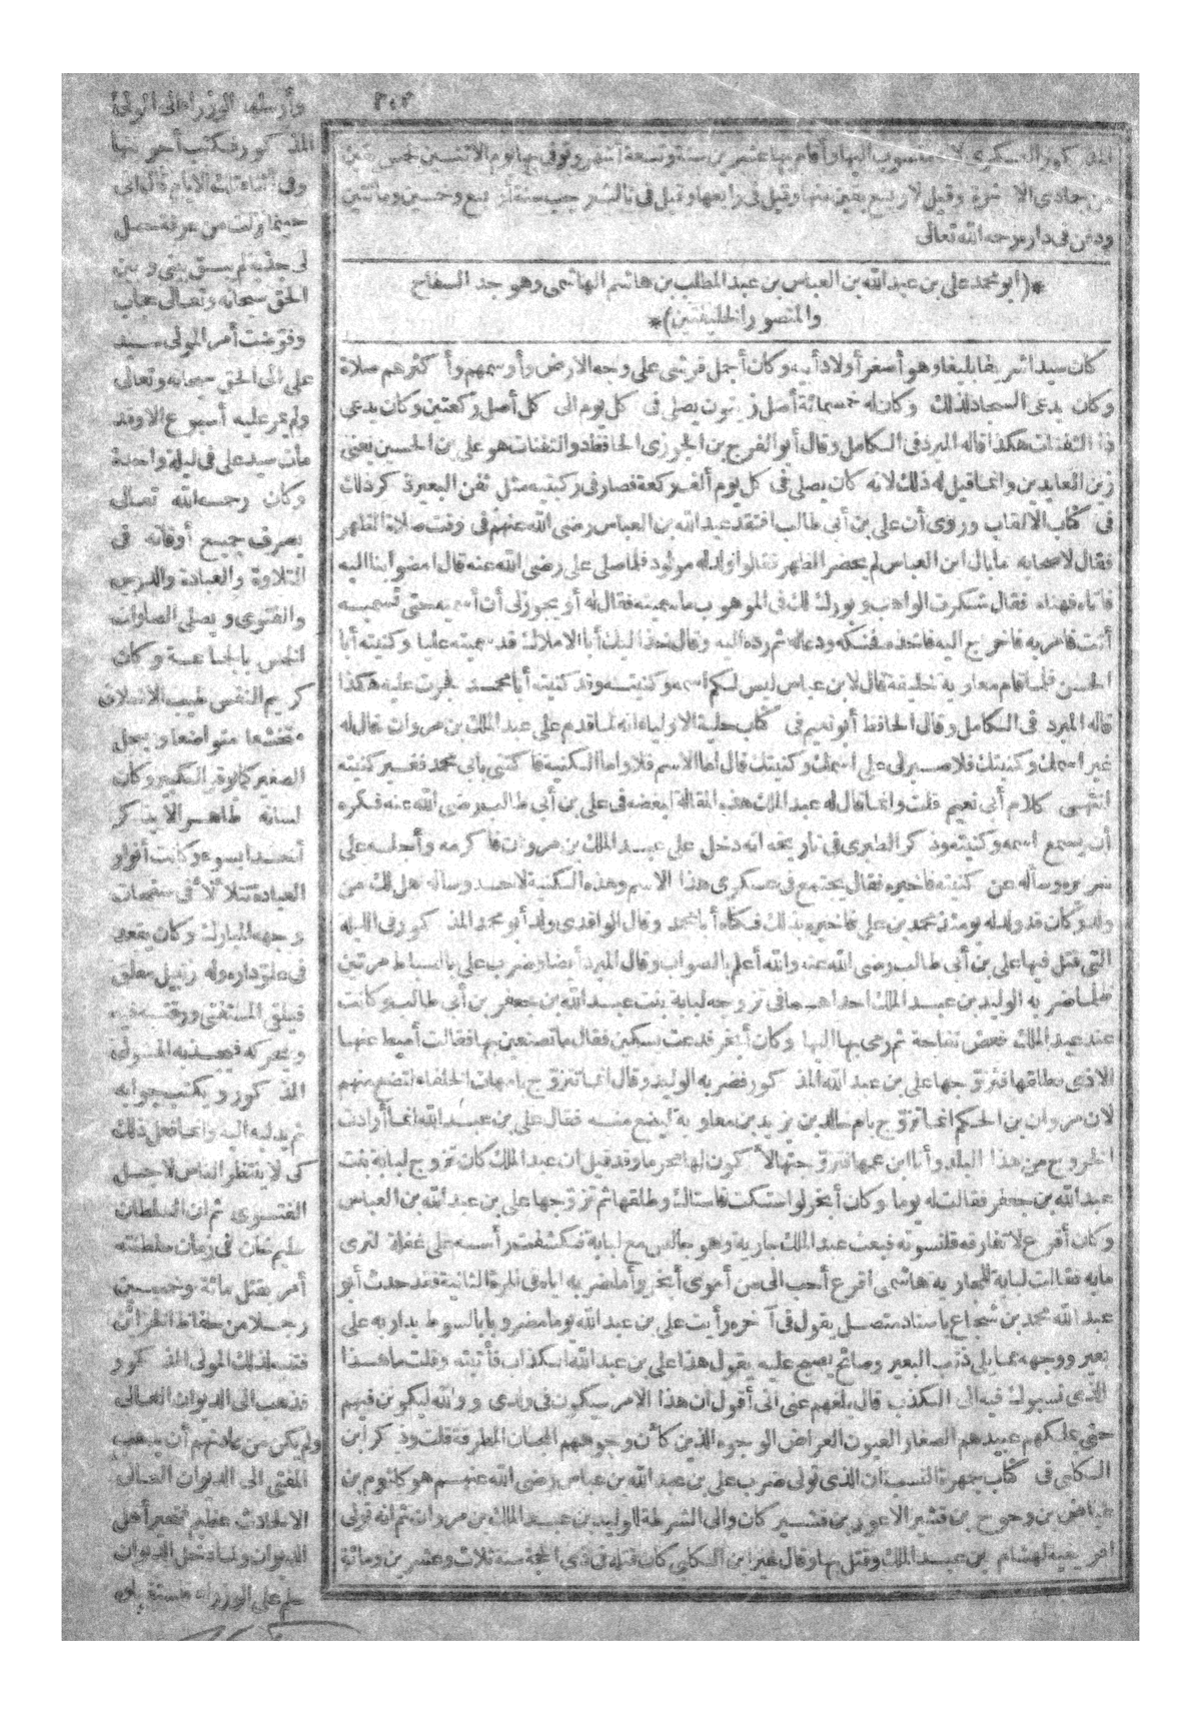 ٣٠٢
المذكور العسكري لانه منسوب اليها وأقام بها عشرين سنة وتسعة أشهر وتوفي بها يوم الاثنين لخمس بقين
من جمادى الآخرة وقيل لاربع بقين منها وقيل في رابعها وقيل في ثالث رجب سنة أربع وخمسين ومائتين
ودفن في داره رحمه الله تعالى
*(ابو محمد علي بن عبد الله بن العباس بن عبد المطلب بن هاشم الهاشمي وهو جد السفاح
والمنصور الخليفتين)*
كان سيدا شريفا بليغا وهو أصغر أولاد أبيه وكان أجمل قرشي على وجه الارض وأوسمهم وأكثرهم صلاة
وكان يدعى السجاد لذلك وكان له خمسمائة أصل زيتون يصلي في كل يوم الى كل أصل ركعتين وكان يدعى
ذا الثفنات هكذا قاله المبرد في الكامل وقال أبو الفرج بن الجوزي الحافظ ذو الثفنات هو علي بن الحسين يعني
زين العابدين وانما قيل له ذلك لانه كان يصلي في كل يوم ألف ركعة فصار في ركبتيه مثل ثفن البعير ذكر ذلك
في كتاب الالقاب وروى أن علي بن أبي طالب افتقد عبد الله بن العباس رضي الله عنهم في وقت صلاة الظهر
فقال لاصحابه ما بال ابن العباس لم يحضر الظهر فقالوا ولد له مولود فلما صلى علي رضي الله عنه قال امضوا بنا اليه
فأتاه فهناه فقال شكرت الواهب وبورك لك في الموهوب ما سميته فقال له أو يجوز لي أن أسميه حتى تسميه
أنت فامر به فاخرج اليه فاخذه فحنكه ودعا له ثم رده اليه وقال خذ اليك أبا الاملاك قد سميته عليا وكنيته أبا
الحسن فلما قام معاوية خليفة قال لابن عباس ليس لكم اسمه وكنيته وقد كنيته أبا محمد فجرت عليه هكذا
قاله المبرد في الكامل وقال الحافظ أبو نعيم في كتاب حلية الاولياء انه لما قدم على عبد الملك بن مروان قال له
غير اسمك وكنيتك فلا صبر لي على اسمك وكنيتك قال اما الاسم فلا واما الكنية فاكتني بابي محمد فغير كنيته
انتهى كلام أبي نعيم قلت وانما قال له عبد الملك هذه المقالة لبغضه في علي بن أبي طالب رضي الله عنه فكره
أن يسمع اسمه وكنيته وذكر الطبري في تاريخه انه دخل على عبد الملك بن مروان فاكرمه وأجلسه على
سريره وسأله عن كنيته فاخبره فقال يجتمع في عسكري هذا الاسم وهذه الكنية لاحد وسأله هل لك من
ولد وكان قد ولد له يومئذ محمد بن علي فاخبره بذلك فكناه أبا محمد وقال الواقدي ولد أبو محمد المذكور في الليلة
التي قتل فيها علي بن أبي طالب رضي الله عنه والله أعلم بالصواب وقال المبرد أيضا وضرب علي بالسياط مرتين
كلتاهما ضربه الوليد بن عبد الملك احداهما في تزوجه لبابة بنت عبد الله بن جعفر بن أبي طالب وكانت
عند عبد الملك فعض تفاحة ثم رمى بها اليها وكان أبخر فدعت بسكين فقال ما تصنعين بها فقالت أميط عنها
الاذى فطلقها فتزوجها علي بن عبد الله المذكور فضربه الوليد وقال انما تتزوج بامهات الخلفاء لتضع منهم
لان مروان بن الحكم انما تزوج بام خالد بن يزيد بن معاوية ليضع منه فقال علي بن عبد الله انما أرادت
الخروج من هذا البلد وأنا ابن عمها فتزوجتها لاكون لها محرما وقد قيل ان عبد الملك كان تزوج لبابة بنت
عبد الله بن جعفر فقالت له يوما وكان أبخر لو استكت فاستاك وطلقها ثم تزوجها علي بن عبد الله بن العباس
وكان أقرع لا تفارقه قلنسوته فبعث عبد الملك جارية وهو جالس مع لبابة فكشفت رأسه على غفلة لترى
ما به فقالت لبابة للجارية هاشمي اقرع أحب الي من أموي أبخر وأما ضربه اياه في المرة الثانية فقد حدث أبو
عبد الله محمد بن شجاع باسناد متصل يقول في آخره رأيت علي بن عبد الله يوما مضروبا بالسوط يدار به على
بعير ووجهه مما يلي ذنب البعير وصائح يصيح عليه يقول هذا علي بن عبد الله الكذاب فأتيته وقلت ما هذا
الذي نسبوك فيه الى الكذب قال بلغهم عني اني أقول ان هذا الامر سيكون في ولدي ووالله ليكونن فيهم
حتى يملكهم عبيدهم الصغار العيون العراض الوجوه الذين كأن وجوههم المجان المطرقة قلت وذكر ابن
الكلبي في كتاب جمهرة النسب ان الذي تولى ضرب علي بن عبد الله بن عباس رضي الله عنهم هو كلثوم بن
عياض بن وحوح بن قشير الاعور بن قشير كان والي الشرطة للوليد بن عبد الملك بن مروان ثم انه تولى
افريقية لهشام بن عبد الملك وقتل بها وقال غير ابن الكلبي كان قتله في ذي الحجة سنة ثلاث وعشرين ومائة
وأرسلها الوزراء الى المولى
المذكور فكتب أجوبتها
وفي أثناء تلك الايام قال اني
حينما نزلت من عرفة حصل
لي جذبة لم يبق بيني وبين
الحق سبحانه وتعالى حجاب
وفوضت أمر المولى سيد
علي الى الحق سبحانه وتعالى
ولم يمر عليه أسبوع الا وقد
مات سيد علي في ليلة واحدة
وكان رحمه الله تعالى
يصرف جميع أوقاته في
التلاوة والعبادة والدرس
والفتوى ويصلي الصلوات
الخمس بالجماعة وكان
كريم النفس طيب الاخلاق
متخشعا متواضعا يبجل
الصغير كما يوقر الكبير وكان
لسانه طاهرا لا يذكر
أحدا بسوء وكانت أنوار
العبادة تتلألأ في صفحات
وجهه المبارك وكان يقعد
في علو داره وله زنبيل معلق
فيلقي المستفتي ورقته فيه
ويحركه فيجذبه المولى
المذكور ويكتب جوابه
ثم يدليه اليه وانما فعل ذلك
كي لا ينتظر الناس لاجل
الفتوى ثم ان السلطان
سليم خان في زمان سلطنته
أمر بقتل مائة وخمسين
رجلا من حفاظ الخزائن
فتنبه لذلك المولى المذكور
فذهب الى الديوان العالي
ولم يكن من عادتهم أن يذهب
المفتي الى الديوان العالي
الا لحادث عظيم فتحير أهل
الديوان ولما دخل الديوان
سلم على الوزراء